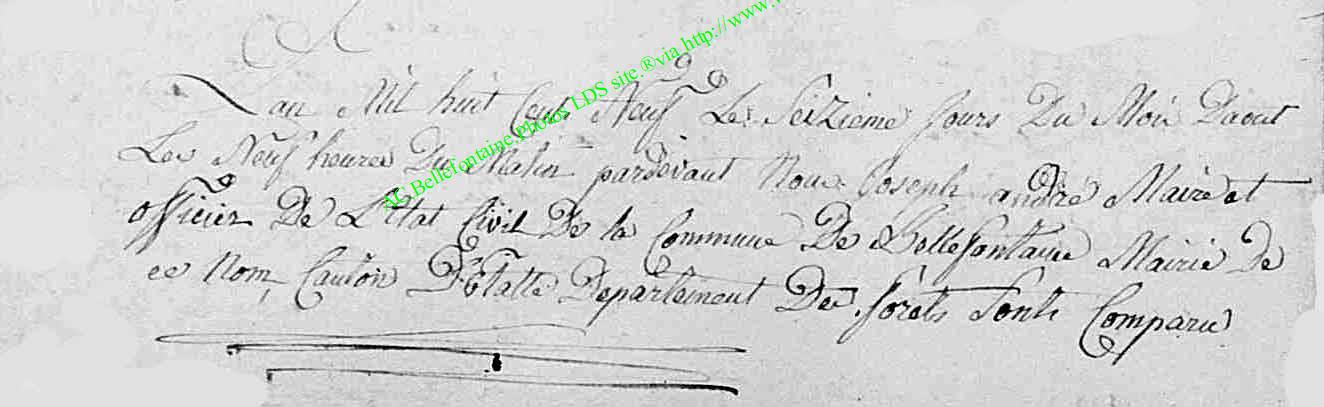 Lan Mil huit Cents Neuf Le Seizieme Jours Du Mois Daout
Les Neuf heures Du Matin pardevant Nous Joseph andré Maire et
officier De L'Etat Civil De la Commune De Bellefontaine Mairie De
ce Nom, Canton D'Etalle Departement Des forêts Sonts Comparu
AC Bellefontaine Photos LDS site.®via http://www.